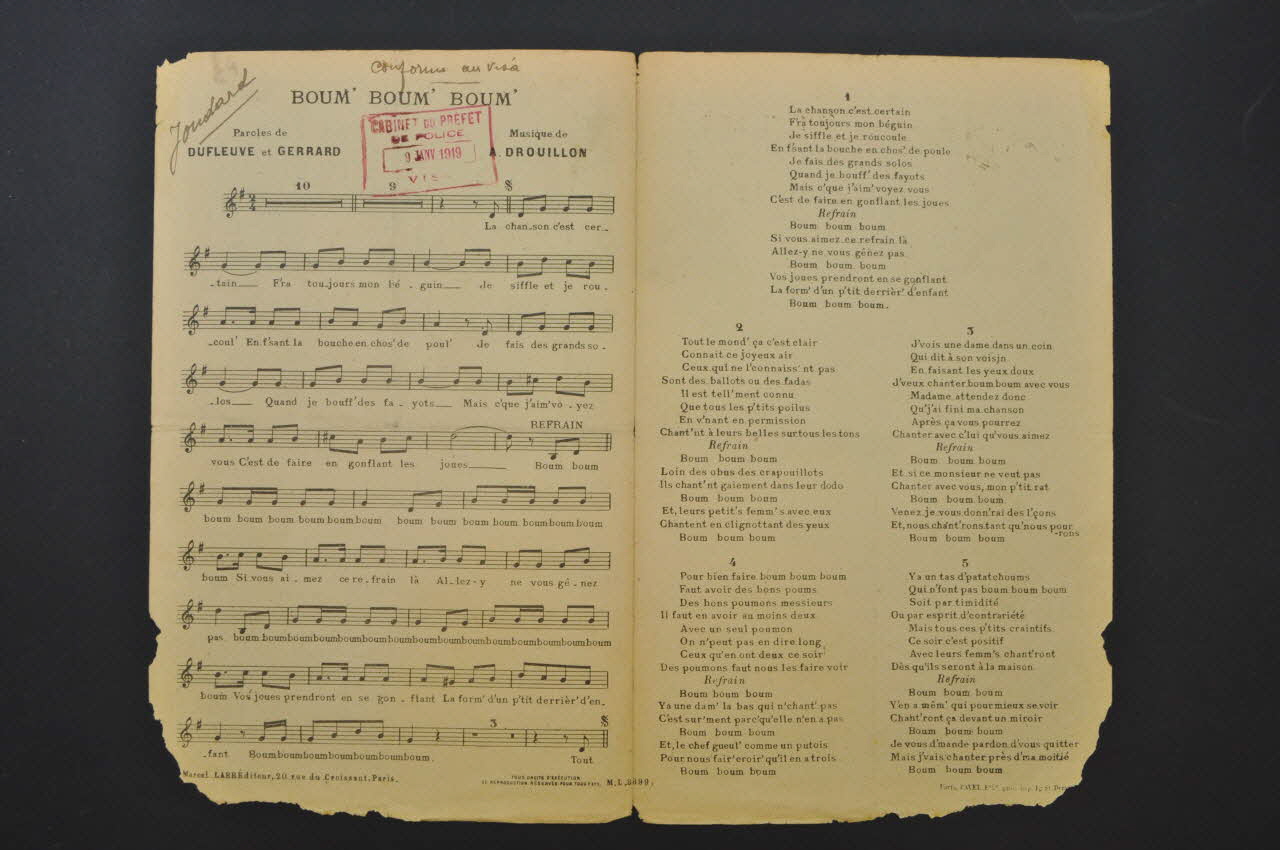 Conforme au visa
Joudard
BOUM' BOUM' BOUM'
Paroles de
DUFLEUVE et GERRARD
CABINET DU PRÉFET
DE POLICE
9 JANV 1919
VIS
Musique de
A. DROUILLON
10 9
La chan_son c'est cer_
_tain___ F'ra tou_jours mon bé_guin___ Je siffle et je rou_
_coul' En f'sant la bouche en chos' de poul' Je fais des grands so_
_los___ Quand je bouff' des fa_yots___ Mais c'que j'aim' vo_yez
REFRAIN
vous C'est de faire en gonflant les joues___ Boum boum
boum boum boum boum boum boum boum boum boum boum boum boum
boum Si vous ai_mez ce re_frain là Al_lez-y ne vous gê_nez
pas boum boum boum boum boum boum boum boum boum boum boum boum boum boum
boum Vos joues prendront en se gon_flant La form' d'un p'tit derrièr' d'en_
3
_fant Boum boum boum boum boum boum boum. Tout
Marcel LABBÉ Éditeur, 20 rue du Croissant, Paris.
TOUS DROITS D'EXÉCUTION
DE REPRODUCTION RÉSERVÉS POUR TOUS PAYS.
M.L. 2899.
1
La chanson c'est certain
F'ra toujours mon béguin
Je siffle et je roucoule
En f'sant la bouche en chos' de poule
Je fais des grands solos
Quand je bouff' des fayots
Mais c'que j'aim' voyez vous
C'est de faire en gonflant les joues
Refrain
Boum boum boum
Si vous aimez ce refrain là
Allez-y ne vous gênez pas
Boum boum boum
Vos joues prendront en se gonflant
La form' d'un p'tit derrièr' d'enfant
Boum boum boum.
2
Tout le mond' ça c'est clair
Connait ce joyeux air
Ceux qui ne l'connaiss'nt pas
Sont des ballots ou des fadas
Il est tell'ment connu
Que tous les p'tits poilus
En v'nant en permission
Chant'nt à leurs belles sur tous les tons
Refrain
Boum boum boum
Loin des obus des crapouillots
Ils chant'nt gaiement dans leur dodo
Boum boum boum
Et, leurs petit's femm's avec eux
Chantent en clignottant des yeux
Boum boum boum
3
J'vois une dame dans un coin
Qui dit à son voisin
En faisant les yeux doux
J'veux chanter boum boum avec vous
Madame attendez donc
Qu'j'ai fini ma chanson
Après ça vous pourrez
Chanter avec c'lui qu'vous aimez
Refrain
Boum boum boum
Et si ce monsieur ne veut pas
Chanter avec vous, mon p'tit rat
Boum boum boum
Venez je vous donn'rai des l'çons
Et, nous chant'rons tant qu'nous pour
-rons
Boum boum boum
4
Pour bien faire boum boum boum
Faut avoir des bons poums
Des bons poumons messieurs
Il faut en avoir au moins deux
Avec un seul poumon
On n'peut pas en dire long
Ceux qu'en ont deux ce soir
Des poumons faut nous les faire voir
Refrain
Boum boum boum
Ya une dam' la bas qui n'chant' pas
C'est sur'ment parc'qu'elle n'en a pas
Boum boum boum
Et, le chef gueul' comme un putois
Pour nous fair' croir' qu'il en a trois
Boum boum boum
5
Ya un tas d'patatchoums
Qui n'font pas boum boum boum
Soit par timidité
Ou par esprit d'contrariété
Mais tous ces p'tits craintifs
Ce soir c'est positif
Avec leurs femm's chant'ront
Dès qu'ils seront à la maison
Refrain
Boum boum boum
Y'en a mêm' qui pour mieux se voir
Chant'ront ça devant un miroir
Boum boum boum
Je vous d'mande pardon d'vous quitter
Mais j'vais chanter près d'ma moitié
Boum boum boum